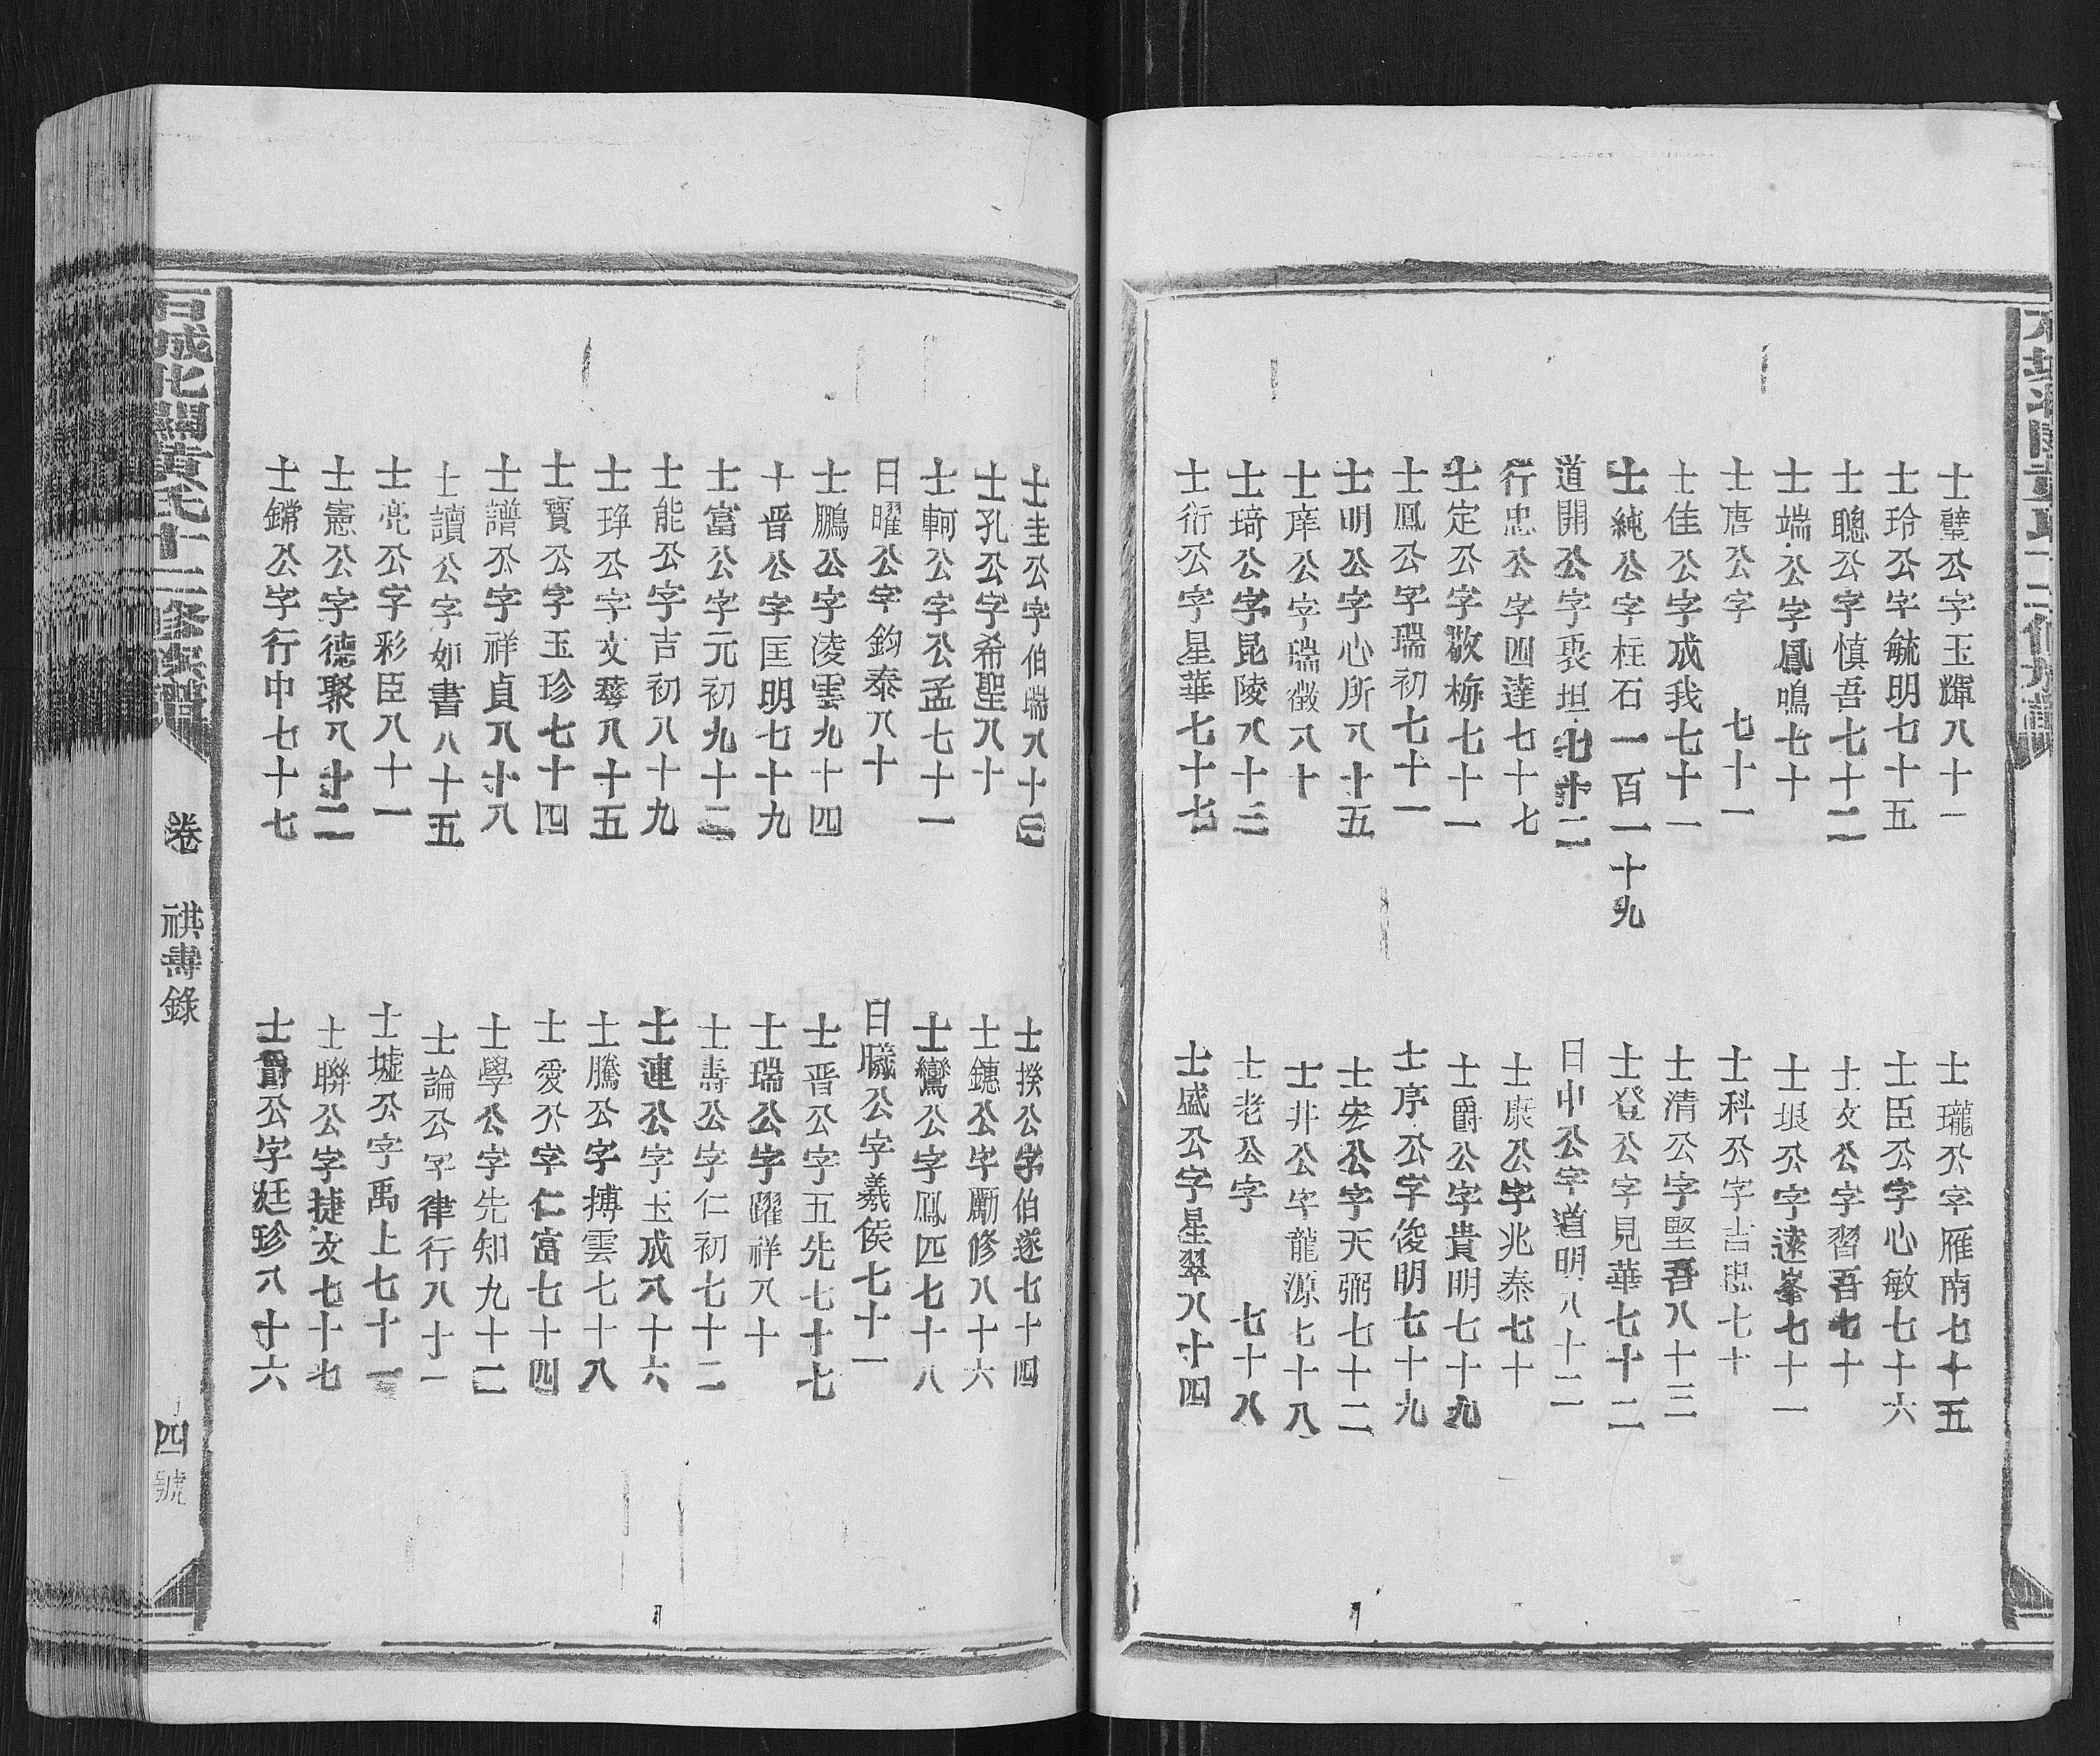 士璧公字玉輝八十一
士玲公字毓明七十五
士聰公字慎吾七十二
士端公字鳳鳴七十
士唐公字 七十一
士佳公字成我七十一
士純公字柱石一百一十九
道開公字坦七十二
行忠公字四達七十七
士定公字敬梅七十一
士鳳公字瑞初七十一
士明公字心所八十五
士庠公字瑞徵八十
士埼公字昆陵八十三
士衍公字星華七十七
士瓏公字雁南七十五
士臣公字心敏七十六
士文公字習吾七十
士垠公字遠峯七十一
士科公字吉聰七十
士清公字堅吾八十三
士登公字見華七十二
日中公字道明八十二
士康公字兆泰七十
士爵公字貴明七十九
士序公字俊明七十九
士宏公字天弼七十二
士井公字龍源七十八
士老公字 七十八
士盛公字星翠八十四
士圭公字伯瑞八十三
士孔公字希聖八十
士軻公字公孟七十一
日曜公字鈞泰八十
士鵬公字凌雲九十四
士晋公字匡明七十九
士富公字元初九十二
士能公字吉初八十九
士琤公字文蕚八十五
士寶公字玉珍七十四
士譜公字祥貞八十八
士讀公字如書八十五
士亮公字彩臣八十一
士憲公字德聚八十二
士鏘公字行中七十七
士揆公字伯遂七十四
士鏸公字勵修八十六
士鸞公字鳳匹七十八
日曦公字羲侯七十一
士晋公字五先七十七
士瑞公字躍祥八十
士壽公字仁初七十二
士連公字玉成八十六
士騰公字搏雲七十八
士愛公字仁富七十四
士學公字先知九十二
士論公字律行八十一
士墟公字禹上七十一
士聯公字捷文七十七
士爵公字廷珍八十六
石城北關黃氏十二修族譜
卷 祺壽錄
四號